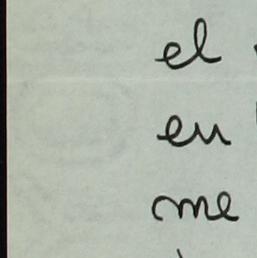 el
en
me